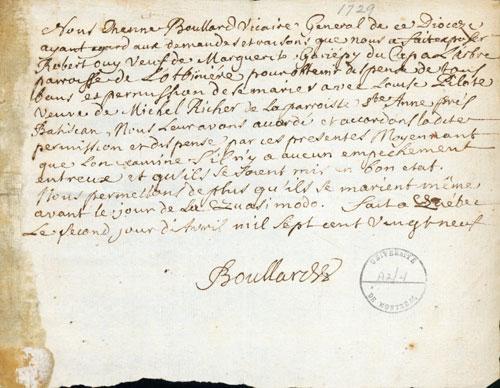 1729
Nous Etienne Boullard Vicaire General de ce Diocèze
ayant egard aux demandes et raisons que nous a fait exposer
Robert ouy Veuf de Marguerite du Cap a L'arbre
parroisse de Lotbiniere pour obtenir dispense de trois
bans et permission de se marier avec Louise Pilote
veuve de Michel Richer de La parroisse Ste Anne près
Batiscan, Nous Leur avons accordé et accordons La dite
permission et dispense par ces presentes Moyennant
que Lon examine S'il n'y a aucun empèchement
entreux et qu'ils se soient mis en bon etat.
Nous permettons de plus qu'ils se marient même
avant le jour de La Quasimodo. fait a Quebec
Le second jour d'Avril mil sept cent vingt neuf
Boullard
UNIVERSITÉ
A2/4
DE MONTRÉAL